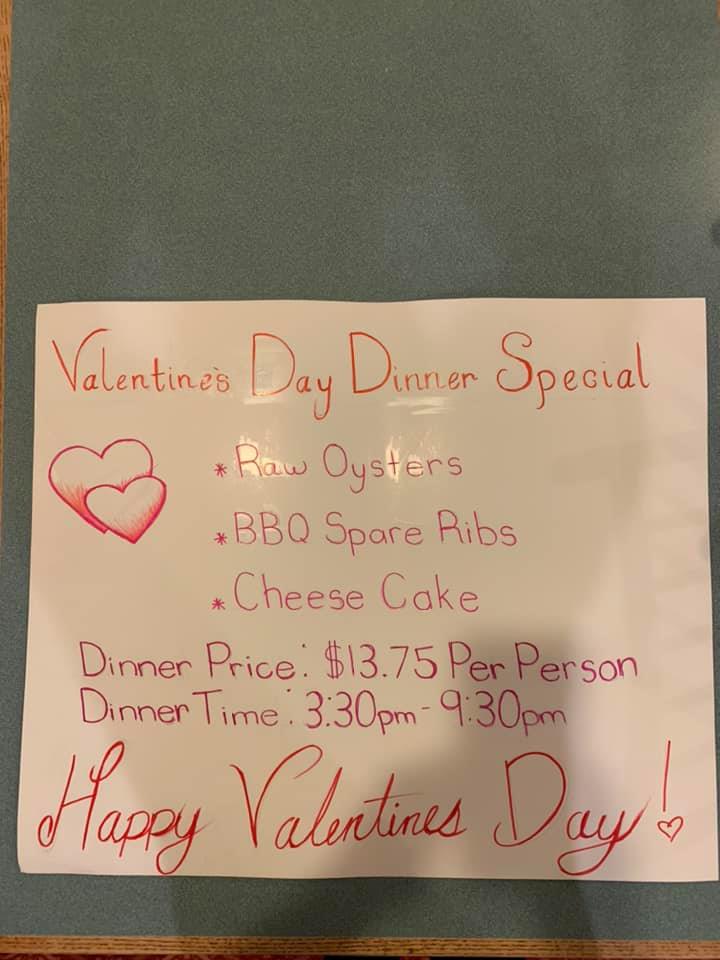 Valentine's Day Dinner Special
* Raw Oysters
* BBQ Spare Ribs
* Cheese Cake
Dinner Price: $13.75 Per Person
Dinner Time: 3:30pm - 9:30pm
Happy Valentines Day!